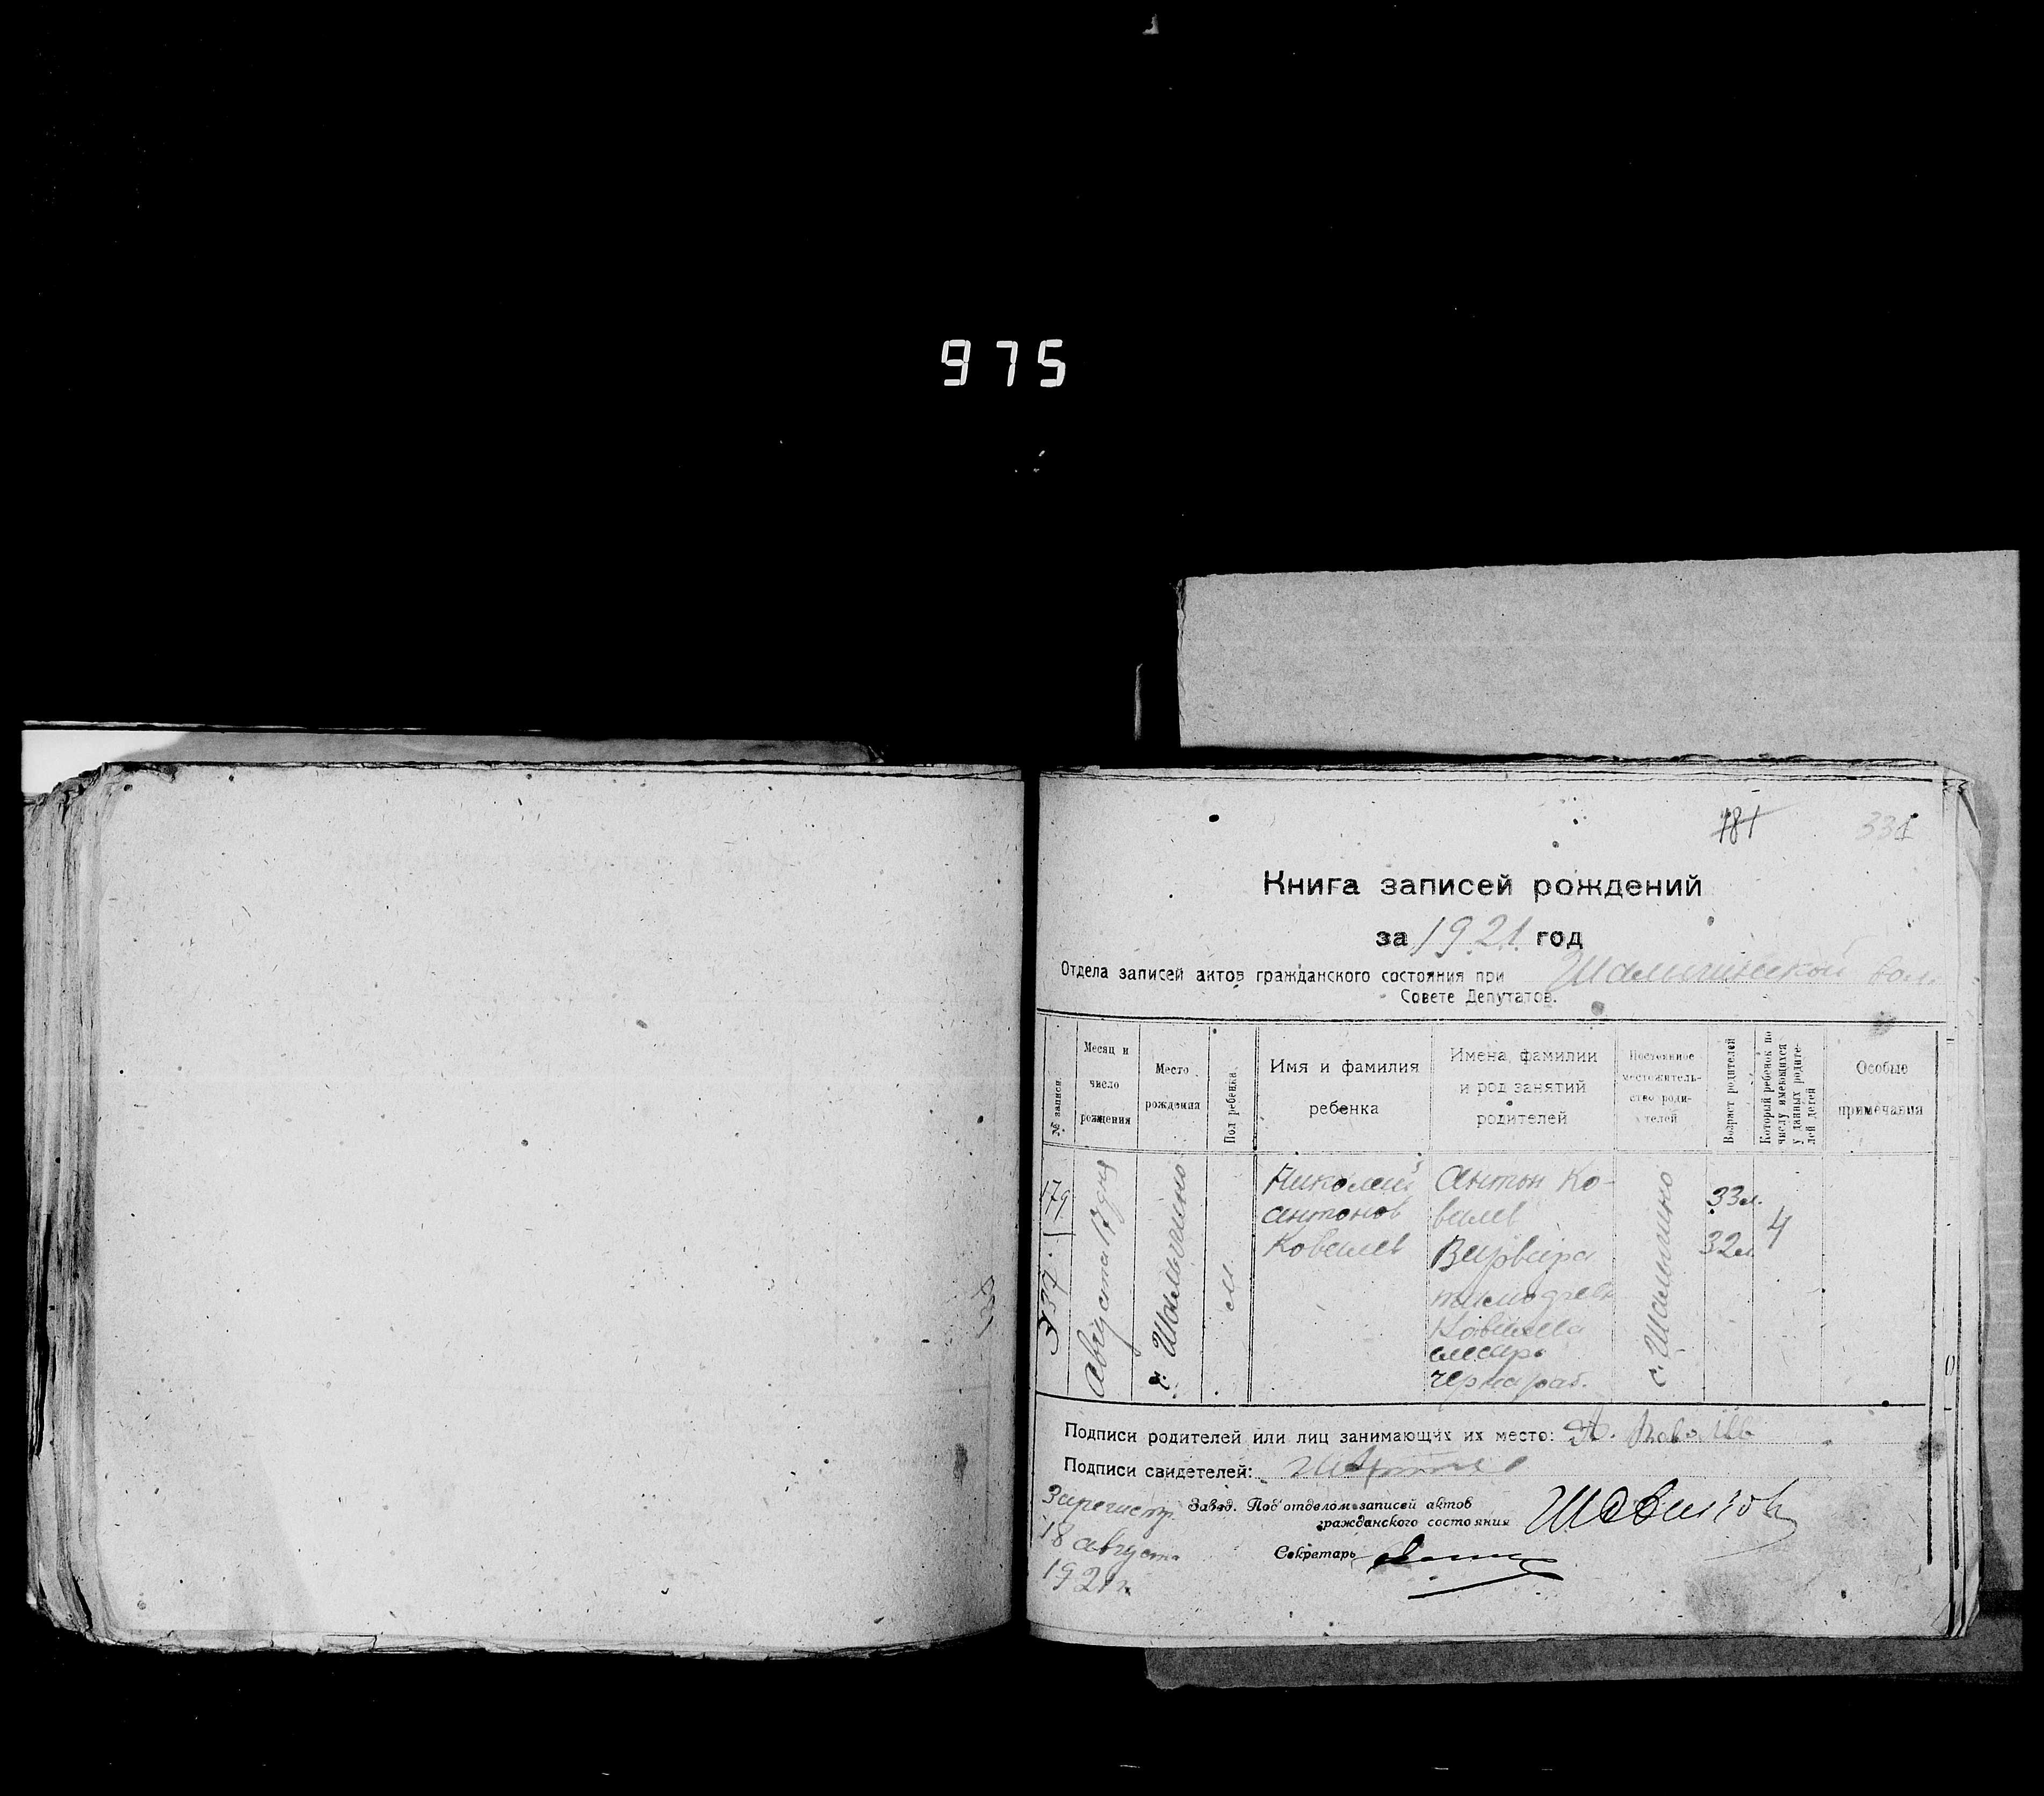 975
181
331
Книга записей рождений
за 1921 год
Отдела записей актов гражданского состояния при Шалыгинской вол.
Совете Депутатов.
№ записи.
Месяц и
число
рождения
Место
рождения
Пол ребенка
Имя и фамилия
ребенка
Имена, фамилии
и род занятий
родителей
Постоянное
местожитель-
ство роди-
телей
Возраст родителей
Который ребенок по
числу имеющихся
у данных родите-
лей детей
Особые
примечания
337 179
Августа 17 дня
с. Шалыгино
м.
Николай
Антонов
Ковалев
Антон Ко-
валев
Варвара
Ковалева
слесарь
чернораб.
с. Шалыгино
33 л.
32 л.
4
Подписи родителей или лиц занимающих их место: А. Ковалев
Подписи свидетелей:
Зарегистр.
18 августа
1921 г.
Завед. Под'отделом записей актов
гражданского состояния
Секретарь